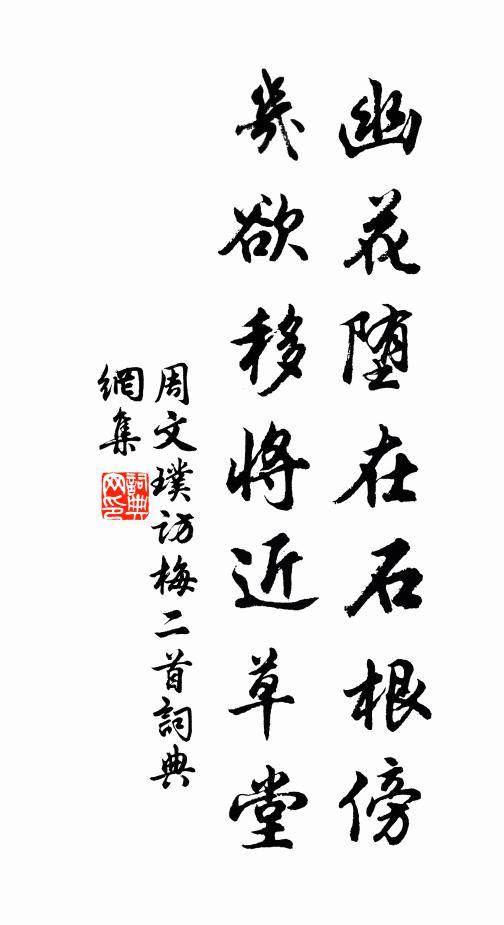 幽花堕在石根傍
幾欲移將近草堂
周文璞訪梅二首詞典
網集
詞典
网印